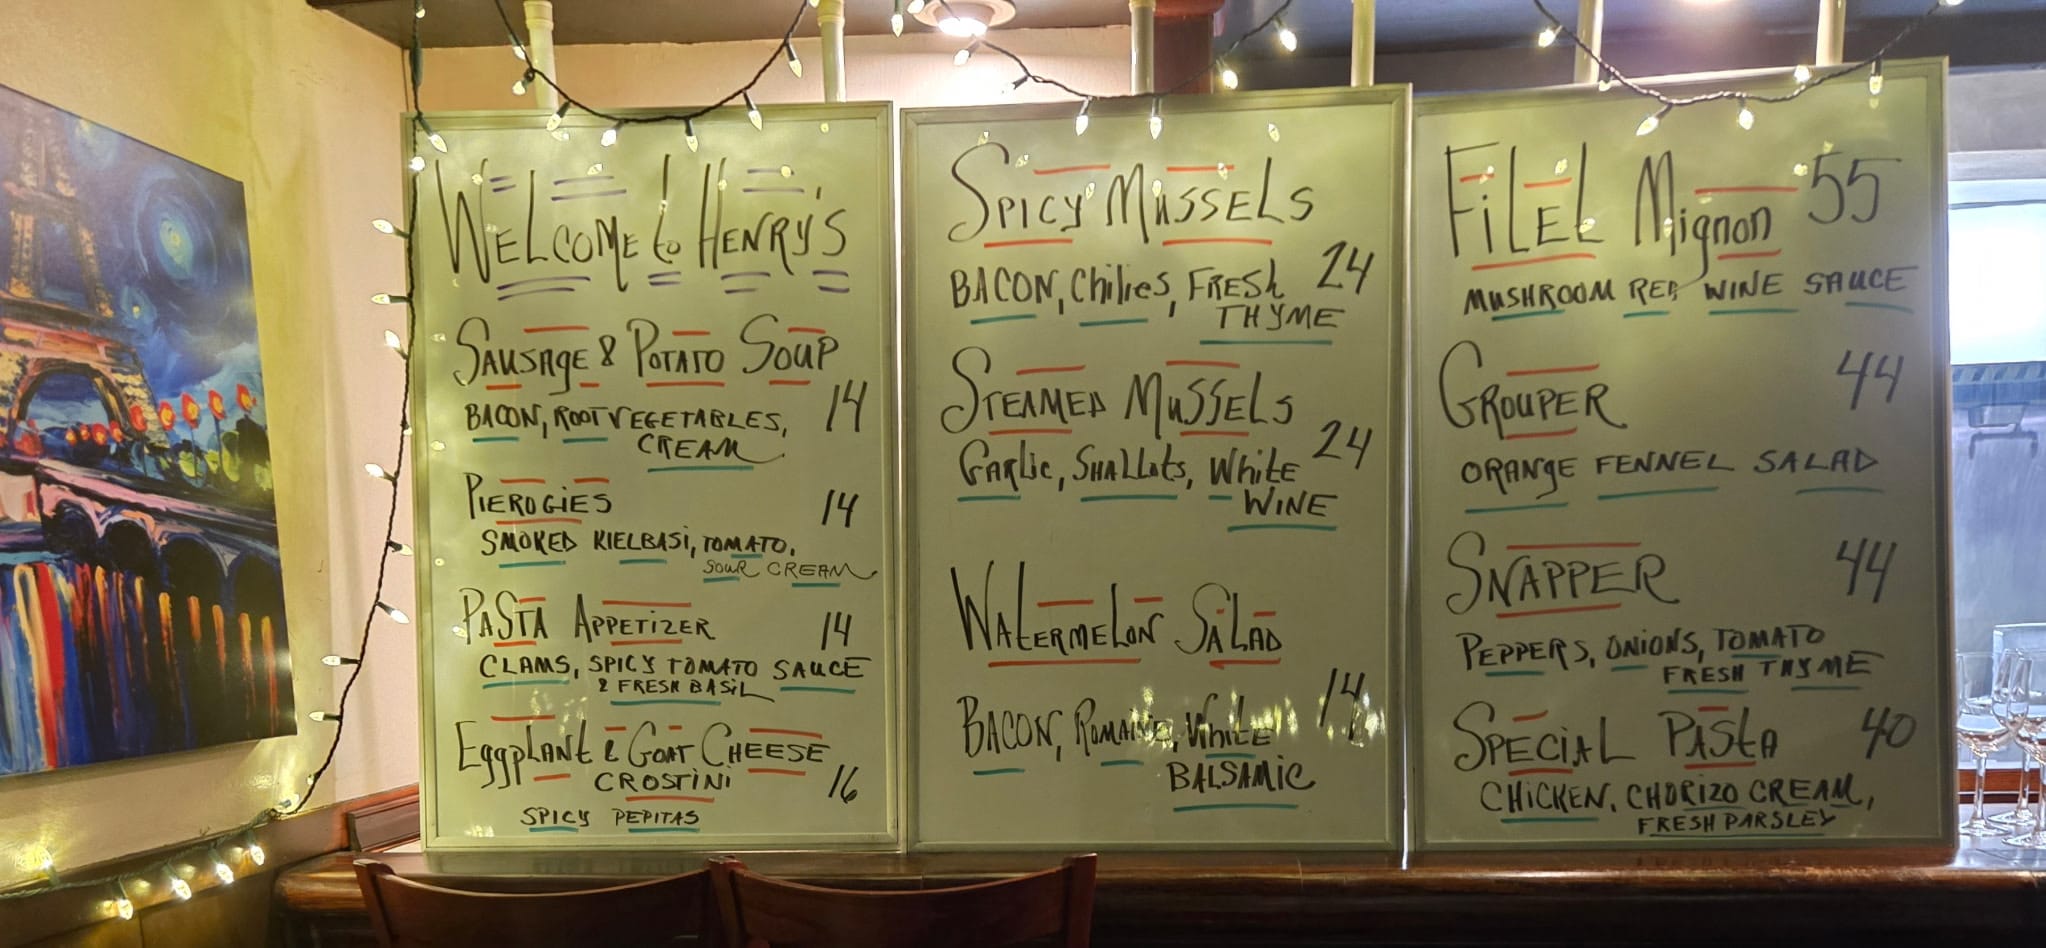 WELCOME to HENRY'S
SAUSAGE & POTATO SOUP
BACON, ROOT VEGETABLES, 14
CREAM
PIEROGIES 14
SMOKED KIELBASI, TOMATO,
SOUR CREAM
PASTA APPETIZER 14
CLAMS, SPICY TOMATO SAUCE
& FRESH BASIL
EggplANt & GOAT CHEESE
CROSTINI 16
SPICY PEPITAS
SPICY MUSSELS
BACON, Chilies, FRESh 24
THYME
STEAMED MUSSELS
Garlic, Shallots, White 24
WINE
WAtERMELON SALAD
BACON, ROMAINE, White 14
BALSAMIC
FiLEt Mignon 55
MUSHROOM RED WINE SAUCE
GROUPER 44
ORANGE FENNEL SALAD
SNAPPER 44
PEPPERS, ONIONS, TOMATO
FRESH THYME
SPECIAL PAStA 40
CHICKEN, CHORIZO CREAM,
FRESH PARSLEY